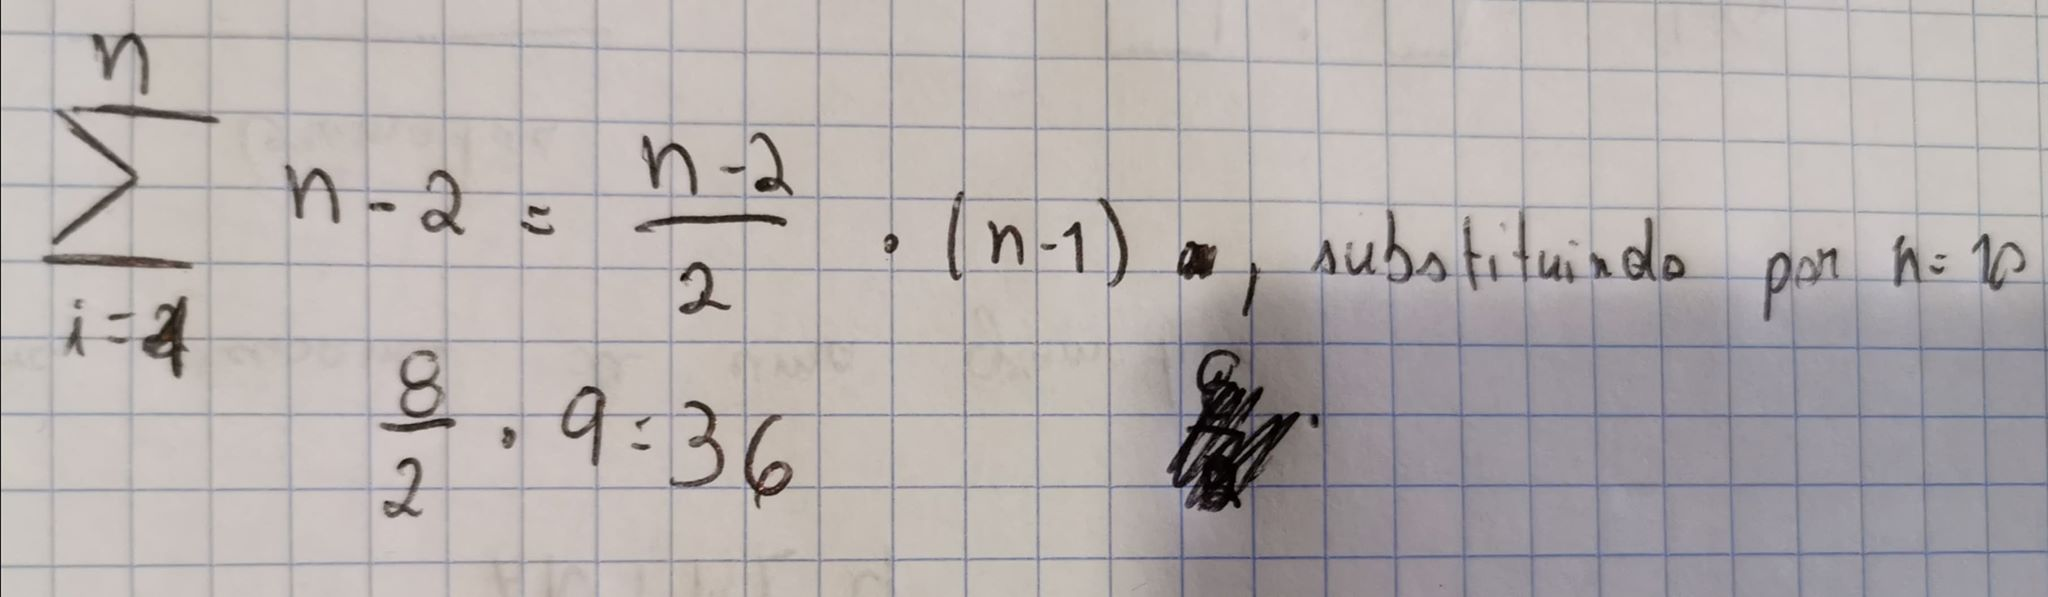 n
∑ n-2 = n-2/2 · (n-1) , substituindo por n=10
i=1
8/2 · 9=36